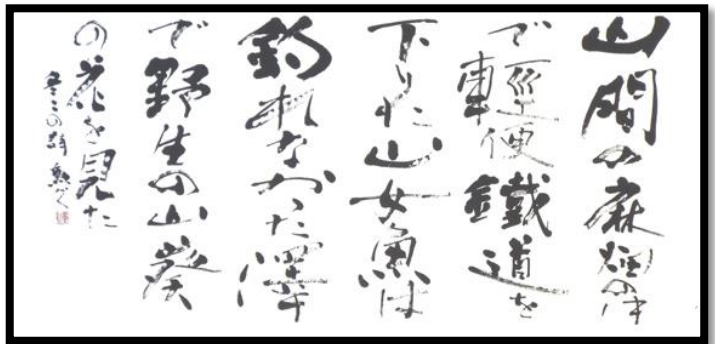 山間の麻畑の中
で輕便鐵道を
下りた山女魚は
釣れなかった澤
で野生の山葵
の花を見た
冬二の詩 かく